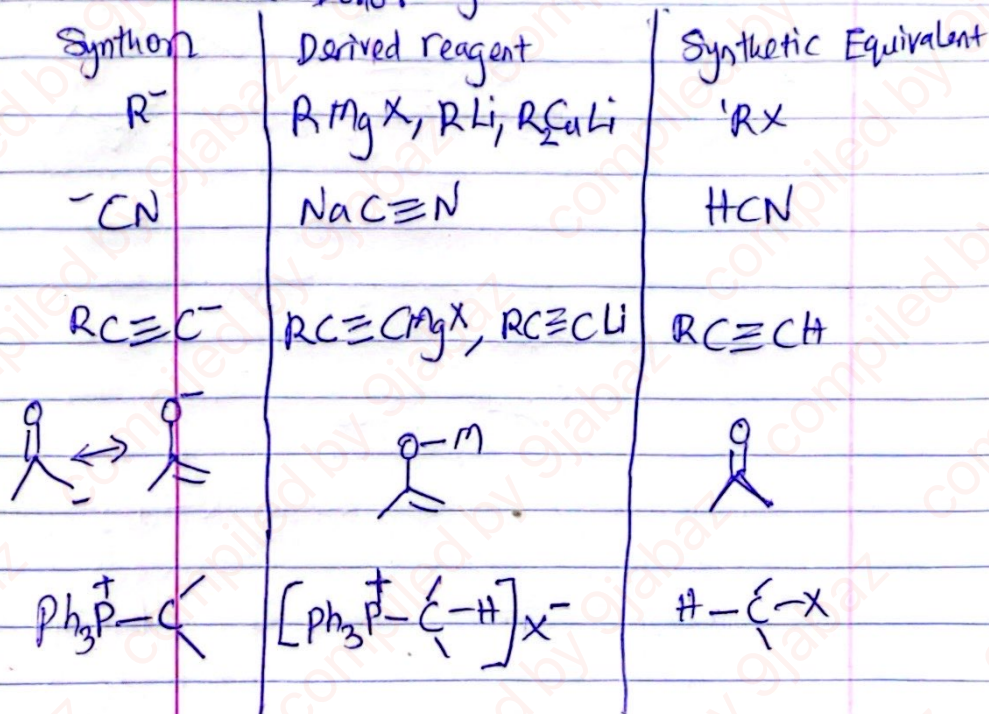 Synthon Derived reagent Synthetic Equivalent
R⁻ RMgX, RLi, R₂CuLi 'RX
⁻CN NaC≡N HCN
RC≡C⁻ RC≡CMgX, RC≡CLi RC≡CH
O ↔ O⁻ O-M O
Ph₃P⁺-C [Ph₃P⁺-C-H]X⁻ H-C-X
compiled by 9jabaz